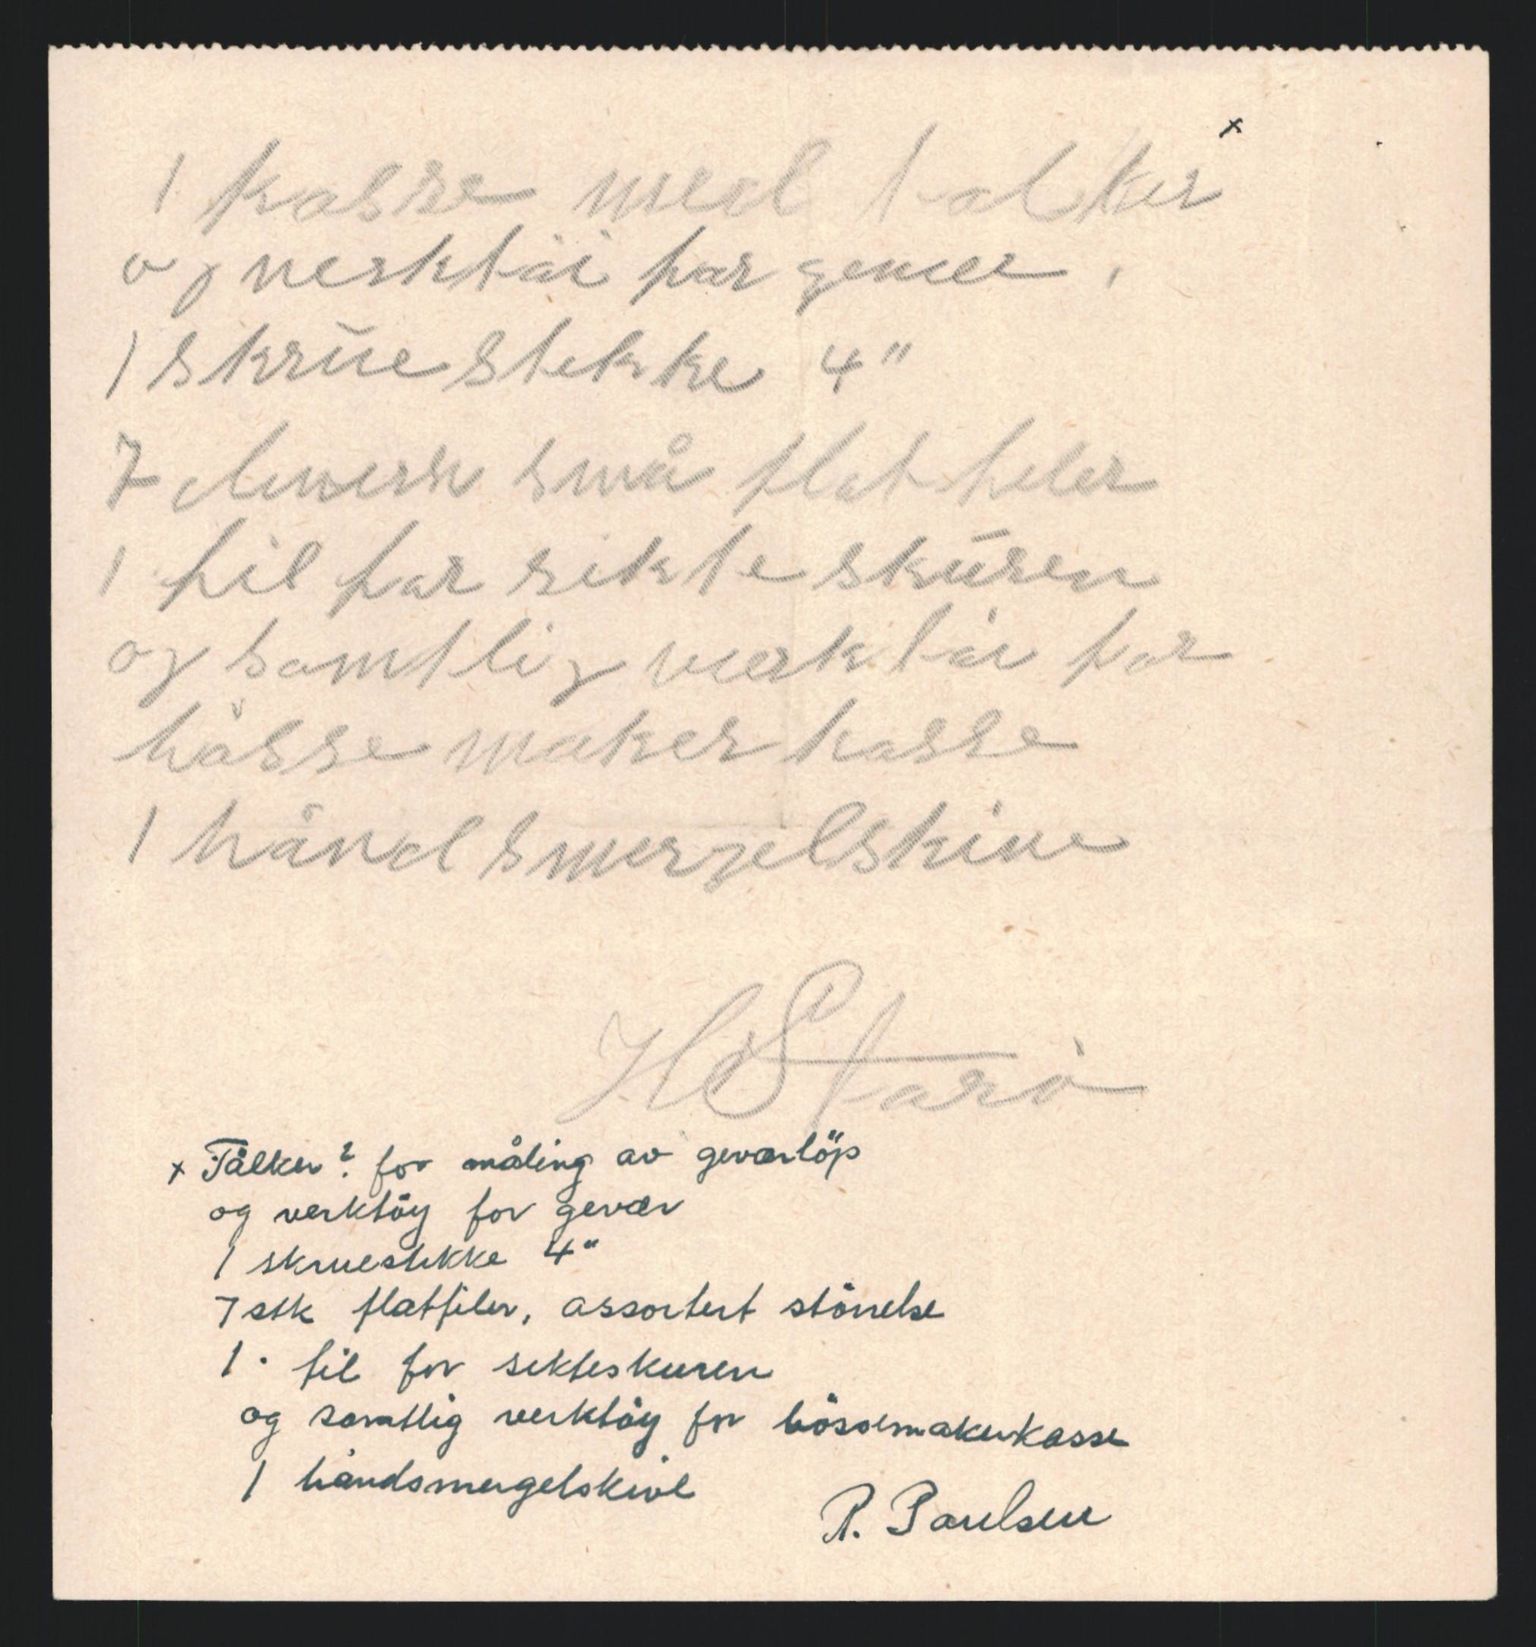 1 kasse med talker x
og verktöi for gever,
1 skrūe stekke 4"
7 små flat feler
1 fil for sikte skūren
og samtlig verktöi for
bösse maker kasse
1 hånd smergelskive
H Starö
x Tålker? for måling av geværlöp
og verktöy for gevær
1 skruestikke 4"
7 stk flatfiler, assortert störrelse
1 · fil for sikteskuren
og samtlig verktöy for bössemakerkasse
1 håndsmergelskive
R. Paulsen